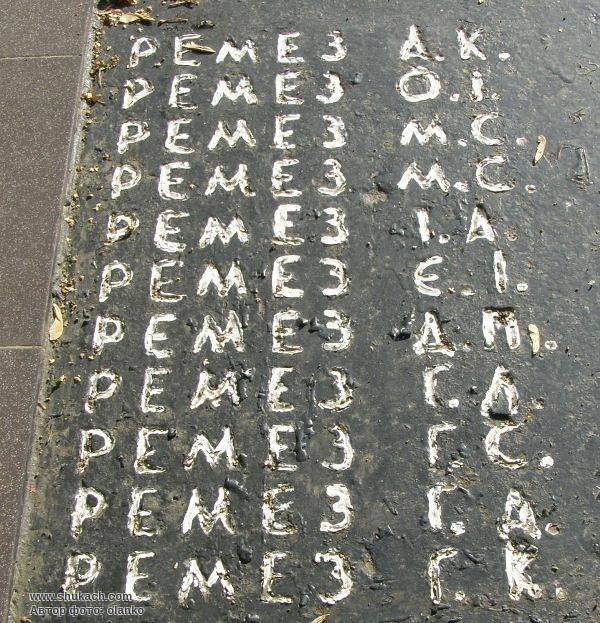 РЕМЕЗ А.К.
РЕМЕЗ О.І.
РЕМЕЗ М.С.
РЕМЕЗ М.С.
РЕМЕЗ І.А
РЕМЕЗ Є.І.
РЕМЕЗ Д.П.
РЕМЕЗ Г.Д.
РЕМЕЗ Г.С.
РЕМЕЗ Г.Д.
РЕМЕЗ Г.К.
www.shukach.com
Автор фото: olanko